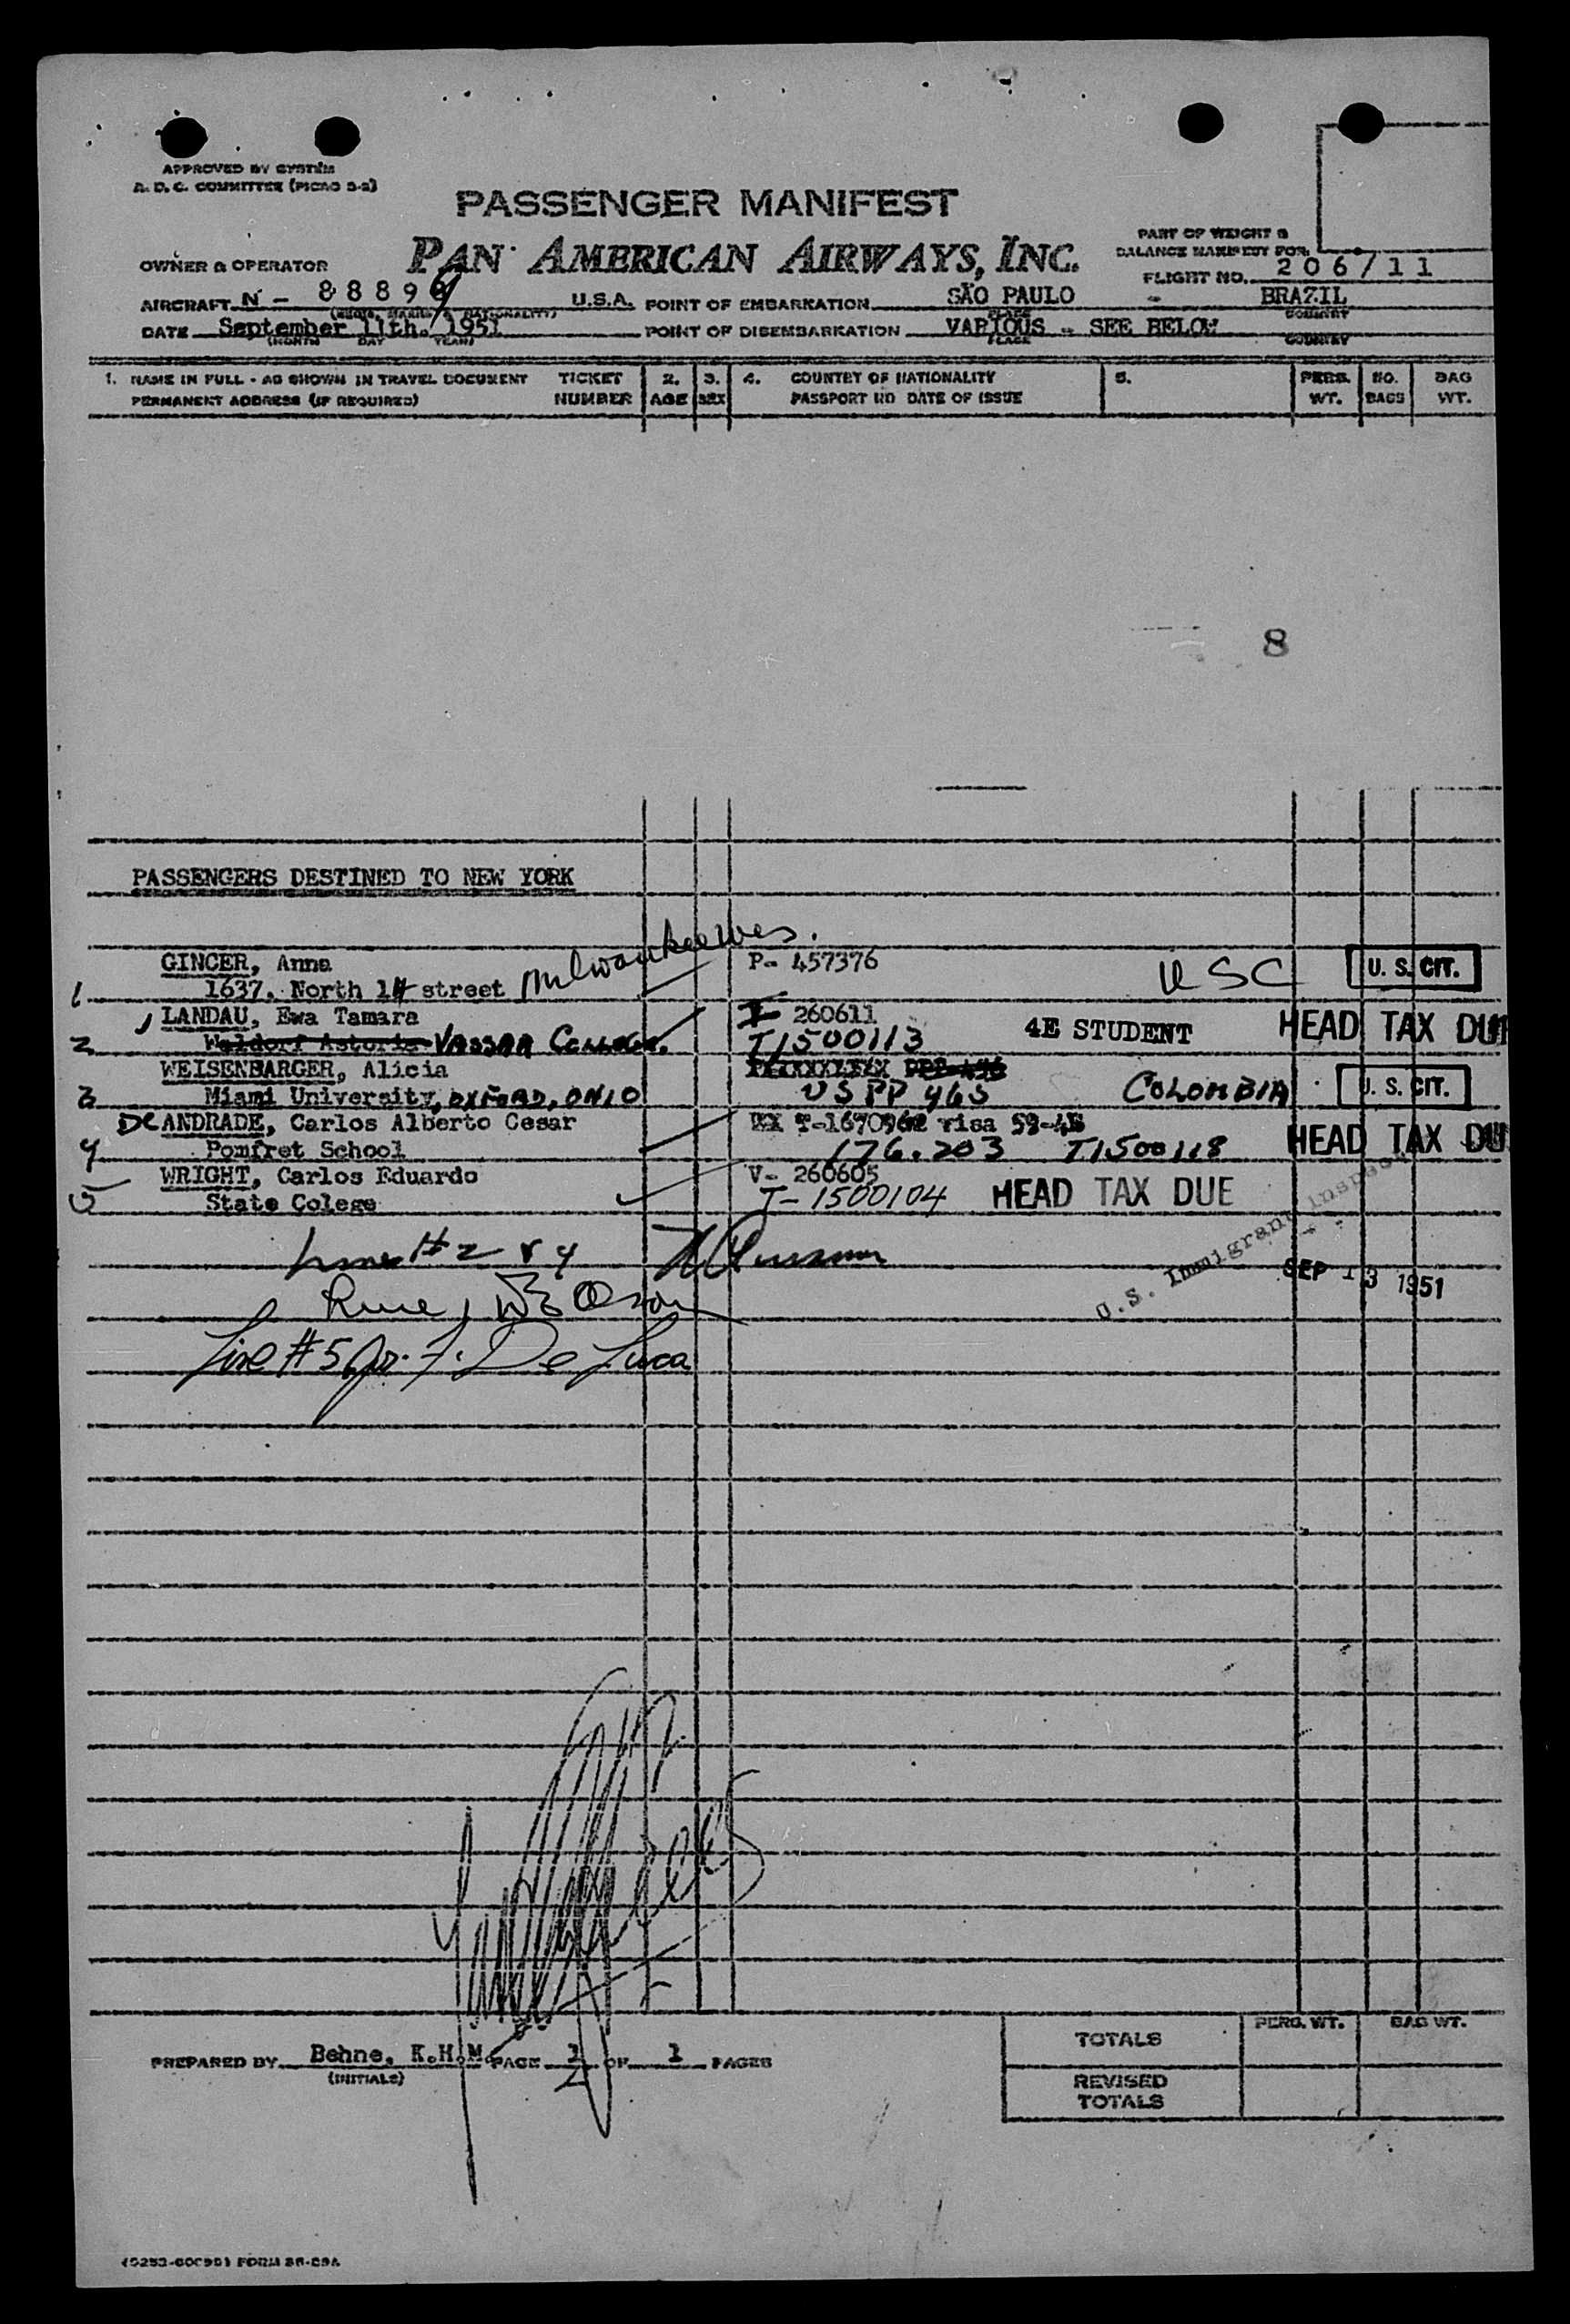 APPROVED BY SYSTEM
A. D. C. COMMITTEE (PICAO 3-2)
PASSENGER MANIFEST
PAN AMERICAN AIRWAYS, INC.
PART OF WEIGHT &
BALANCE MANIFEST FOR
OWNER & OPERATOR
FLIGHT NO. 206/11
AIRCRAFT N - 8889 U.S.A. POINT OF EMBARKATION SÃO PAULO - BRAZIL
PLACE COUNTRY
DATE September 11th. 1951 POINT OF DISEMBARKATION VARIOUS - SEE BELOW
(MONTH DAY YEAR) PLACE COUNTRY
1. NAME IN FULL - AS SHOWN IN TRAVEL DOCUMENT TICKET 2. 3. 4. COUNTRY OF NATIONALITY 5. PERS. NO. BAG
PERMANENT ADDRESS (IF REQUIRED) NUMBER AGE SEX PASSPORT NO DATE OF ISSUE WT. BAGS WT.
8
PASSENGERS DESTINED TO NEW YORK
GINGER, Anna P- 457376 USC U. S. CIT.
1 1637, North 14 street Milwaukee Wes.
LANDAU, Ewa Tamara 260611 4E STUDENT HEAD TAX DUE
2 Waldorf Astoria VASSAR COLLEGE. T1500113
WEISENBARGER, Alicia
3 Miami University, OXFORD, OHIO US PP 465 COLOMBIA U. S. CIT.
DE ANDRADE, Carlos Alberto Cesar T-1670962 visa 59-4E
4 Pomfret School 176.203 T1500118 HEAD TAX DU
WRIGHT, Carlos Eduardo V- 260605
5 State Colege T-1500104 HEAD TAX DUE
U.S. Immigrant Inspector
SEP 13 1951
Line # 2 & 4
Line 1
Line #5 F. De Luca
PREPARED BY Behne, K.H.M. PAGE 1 OF 1 PAGES
(INITIALS)
TOTALS PERS. WT. BAG WT.
REVISED
TOTALS